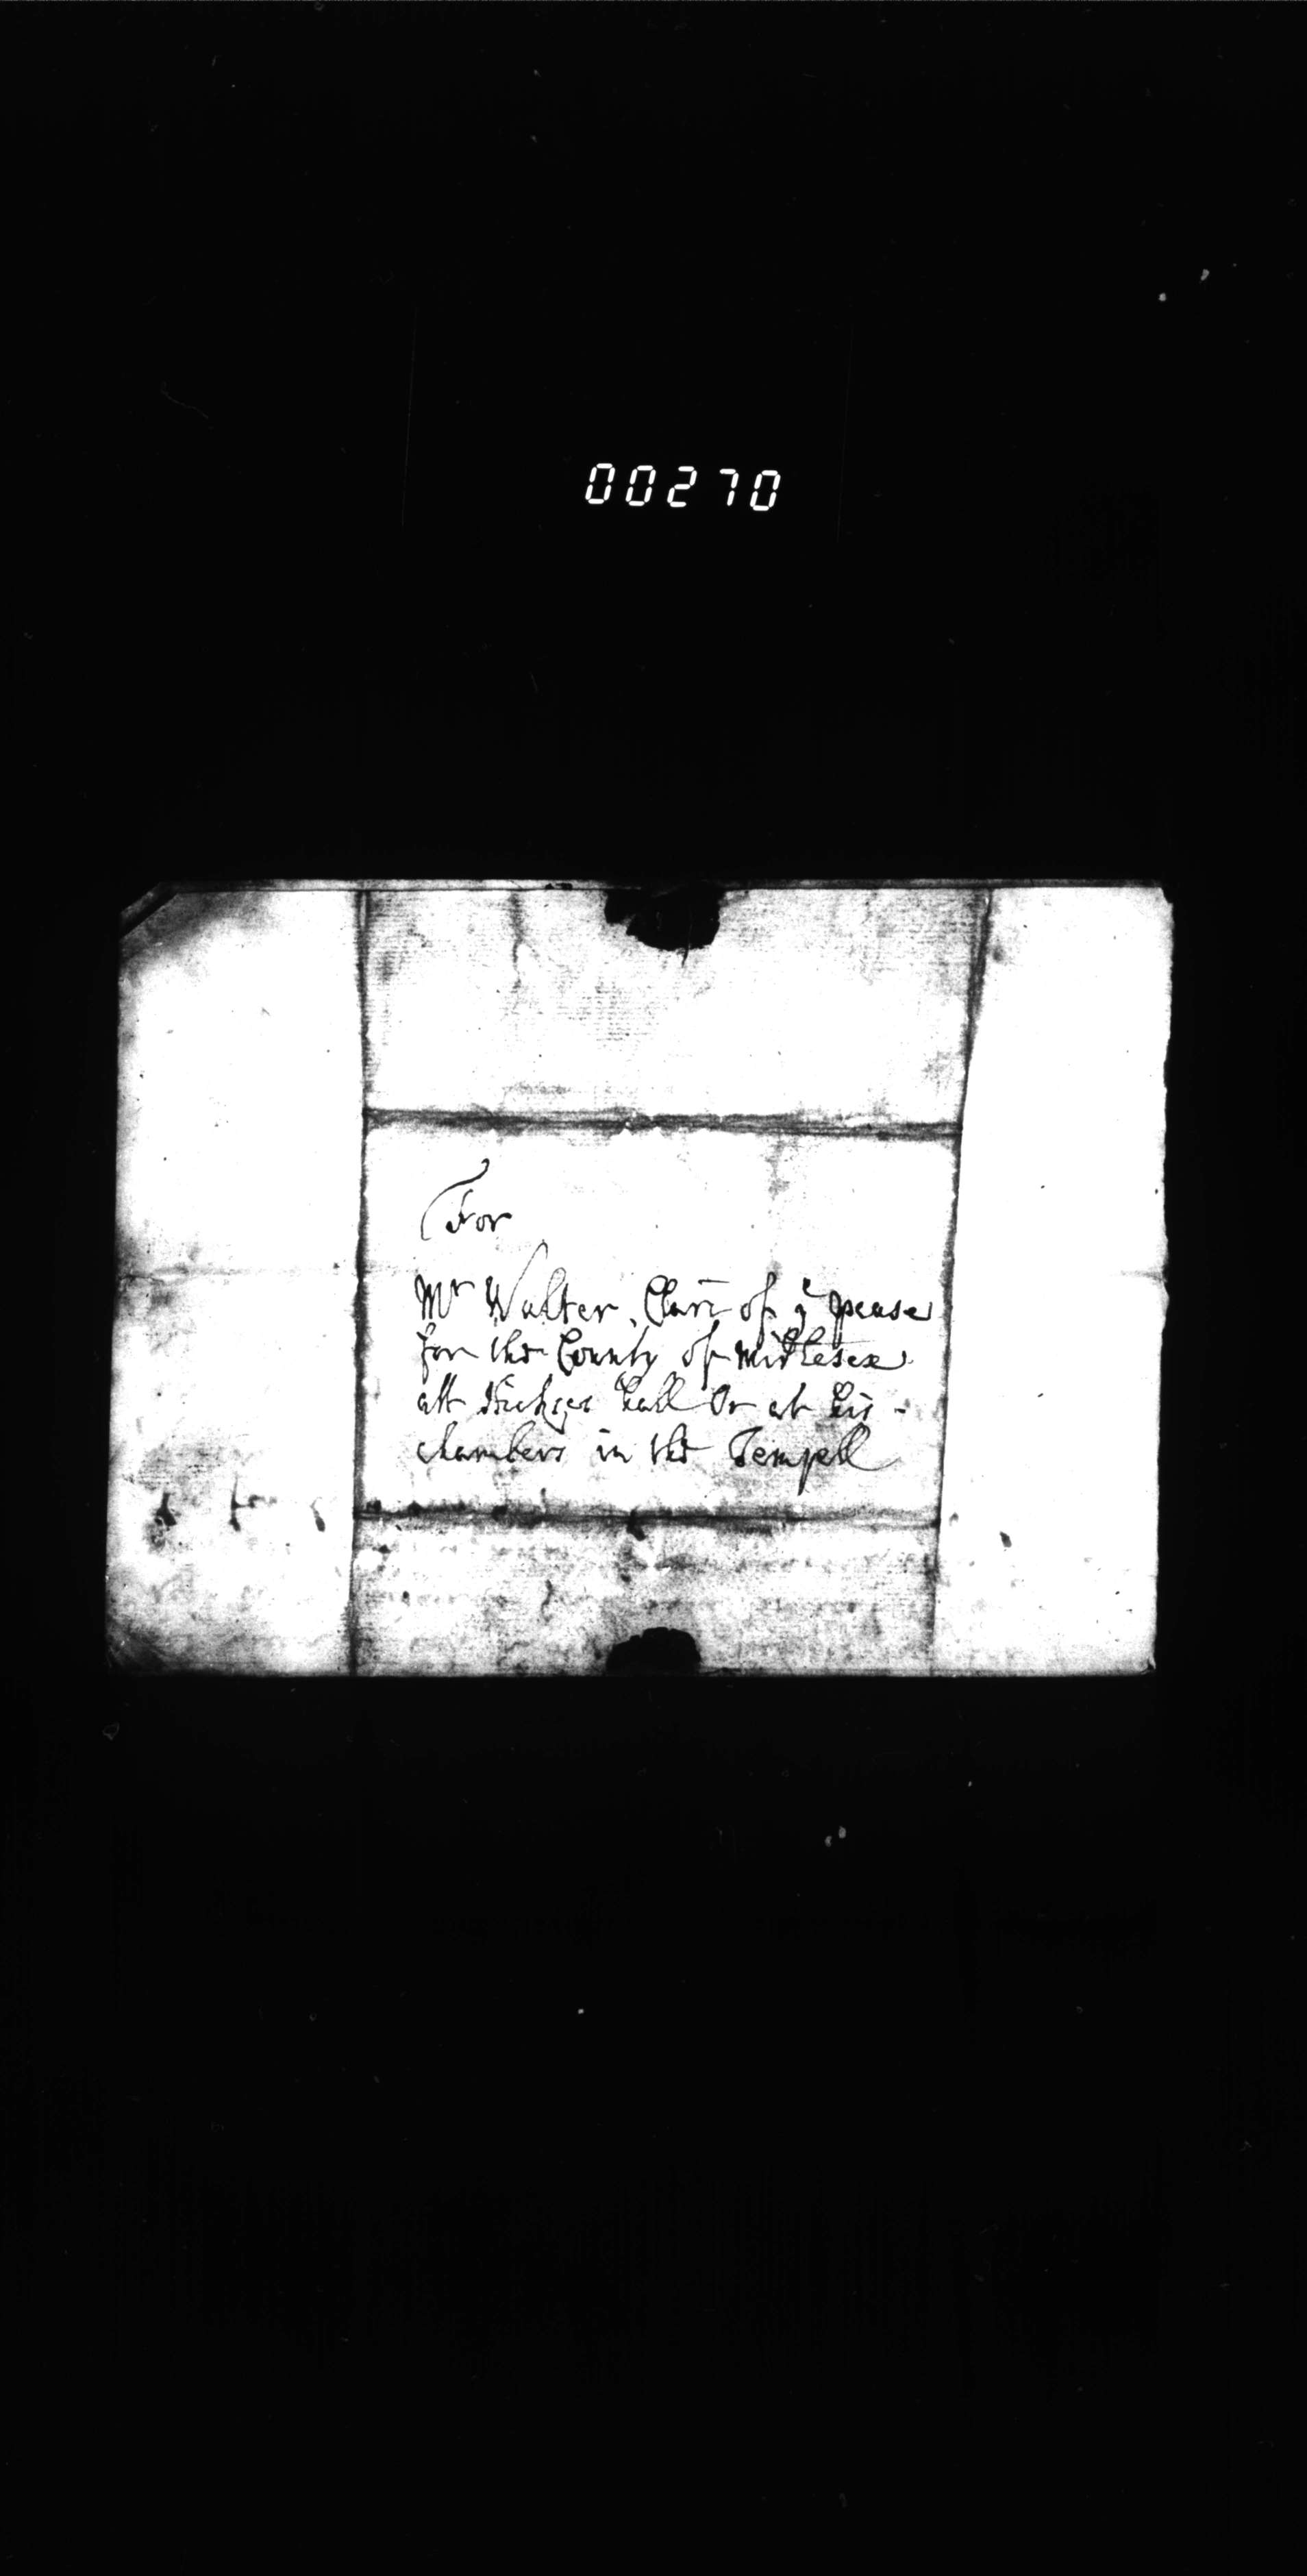 00270
For
Mr Walter Clarc of ye pease
for the County of Midlesex
att Hickses hall Or at his -
chambers in the Tempell